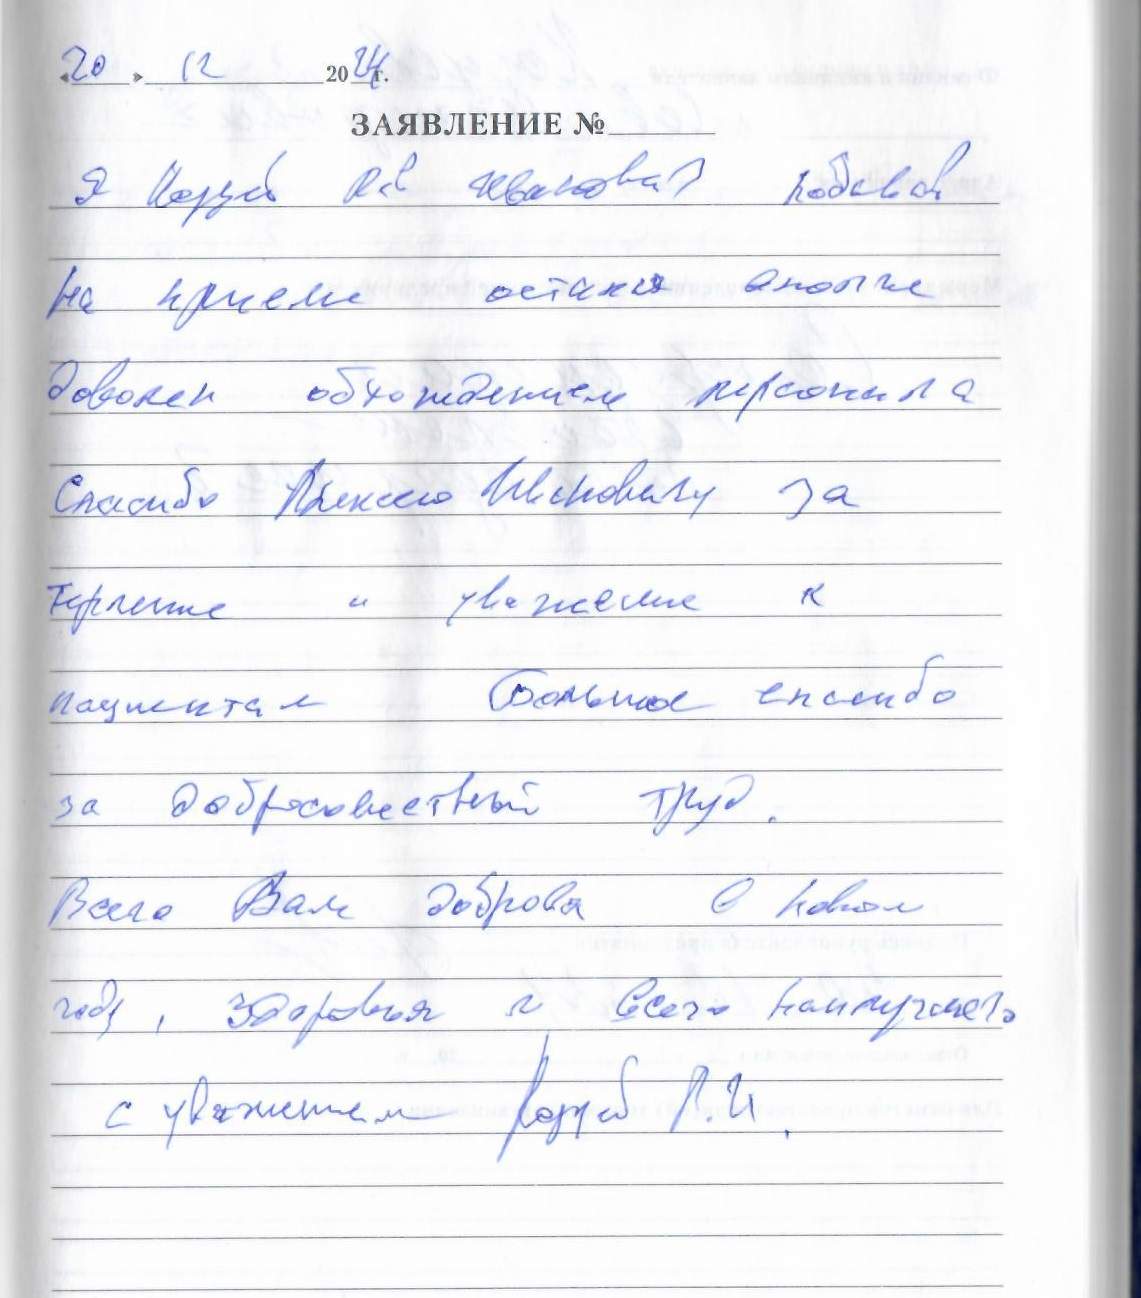 «20» 12 2024 г.
ЗАЯВЛЕНИЕ №
Я Лев Иванович побывав
на приеме остался вполне
доволен обхождением персонала
Спасибо Алексею Ивановичу за
терпение и уважение к
пациентам Большое спасибо
за добросовестный труд.
Всего Вам доброва в новом
году, здоровья и всего наилучшего
с уважением Л.И.